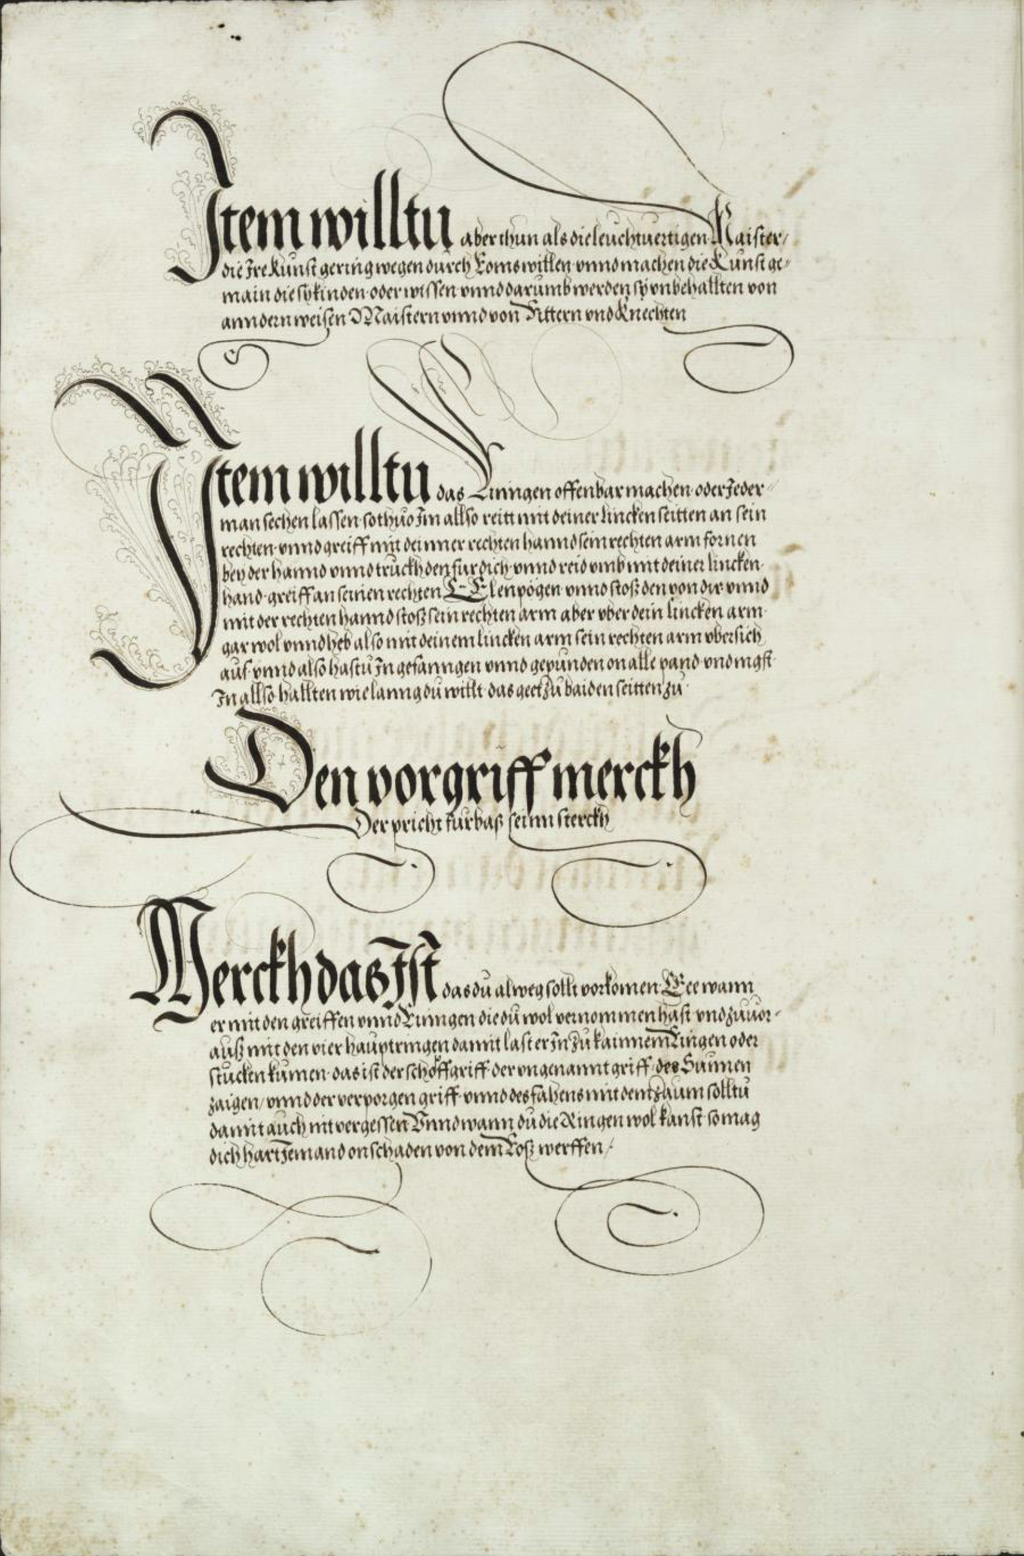 Item willtu aber thun als die leuchtuertigen Maister /
die Ire Kunst gering wegen durch Loms willen vnnd machen die Kunst ge-
main die sy kinden oder wissen vnnd darumb werden sy vnbehallten von
anndern weisen Maistern vnnd von Rittern vnd Knechten
Item willtu das Ringen offenbar machen oder Jeder-
man sechen lassen so thuo Im allso reitt mit deiner lincken seitten an sein
rechten vnnd greiff mit deinner rechten hannd sein rechten arm fornen
bey der hannd vnnd truckh den für dich vnnd reid vmb mit deiner lincken
hand greiff an seinen rechten Elenpogen vnnd stoß den von dir vnnd
mit der rechten hannd stoß sein rechten arm aber vber dein lincken arm
gar wol vnnd heb also mit deinem lincken arm sein rechten arm vbersich
auf vnnd also hastu In gefanngen vnnd gepunden on alle pand vnd magst
In allso hallten wie lanng du willt das geet zu baiden seitten zu
Den vorgriff merckh
Der pricht fürbaß seinn sterckh
Merckh das Ist das du alweg sollt vorkomen Ee wann
er mit den greiffen vnnd Ringen die du wol vernommen hast vnd zuuor-
auß mit den vier haupt ringen damit last er In zu kainnem Ringen oder
stucken kumen das ist der schöffgriff der vngenannt griff der Sunnen
zaigen / vnnd der verporgen griff vnnd des fahens mit dem zaum solltu
damit auch nit vergessen Vnnd wann du die Ringen wol kanst so mag
dich hart Jemand on schaden von dem Roß werffen /